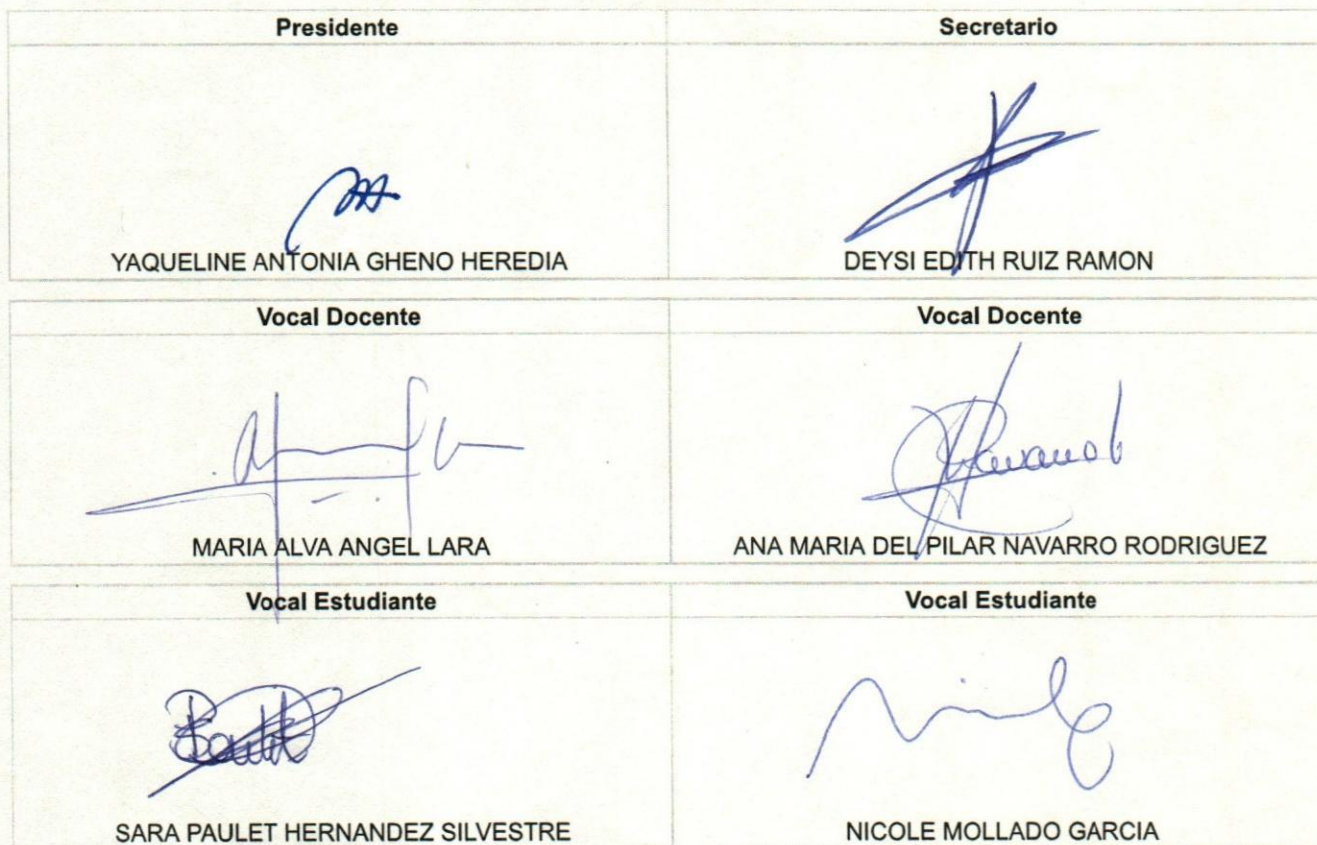 Presidente
Secretario
YAQUELINE ANTONIA GHENO HEREDIA
DEYSI EDITH RUIZ RAMON
Vocal Docente
Vocal Docente
MARIA ALVA ANGEL LARA
ANA MARIA DEL PILAR NAVARRO RODRIGUEZ
Vocal Estudiante
Vocal Estudiante
SARA PAULET HERNANDEZ SILVESTRE
NICOLE MOLLADO GARCIA